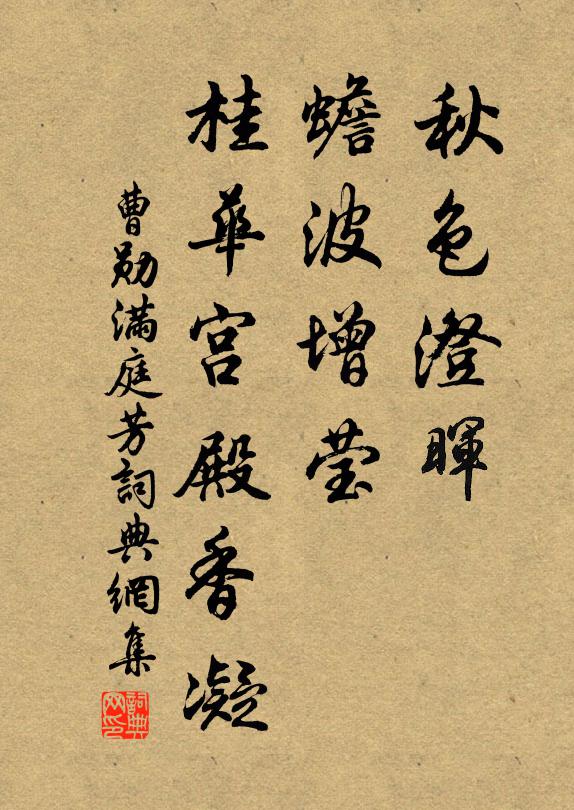 秋色澄暉
蟾波增莹
桂華宫殿香凝
曹勋满庭芳詞典網集
詞典网印